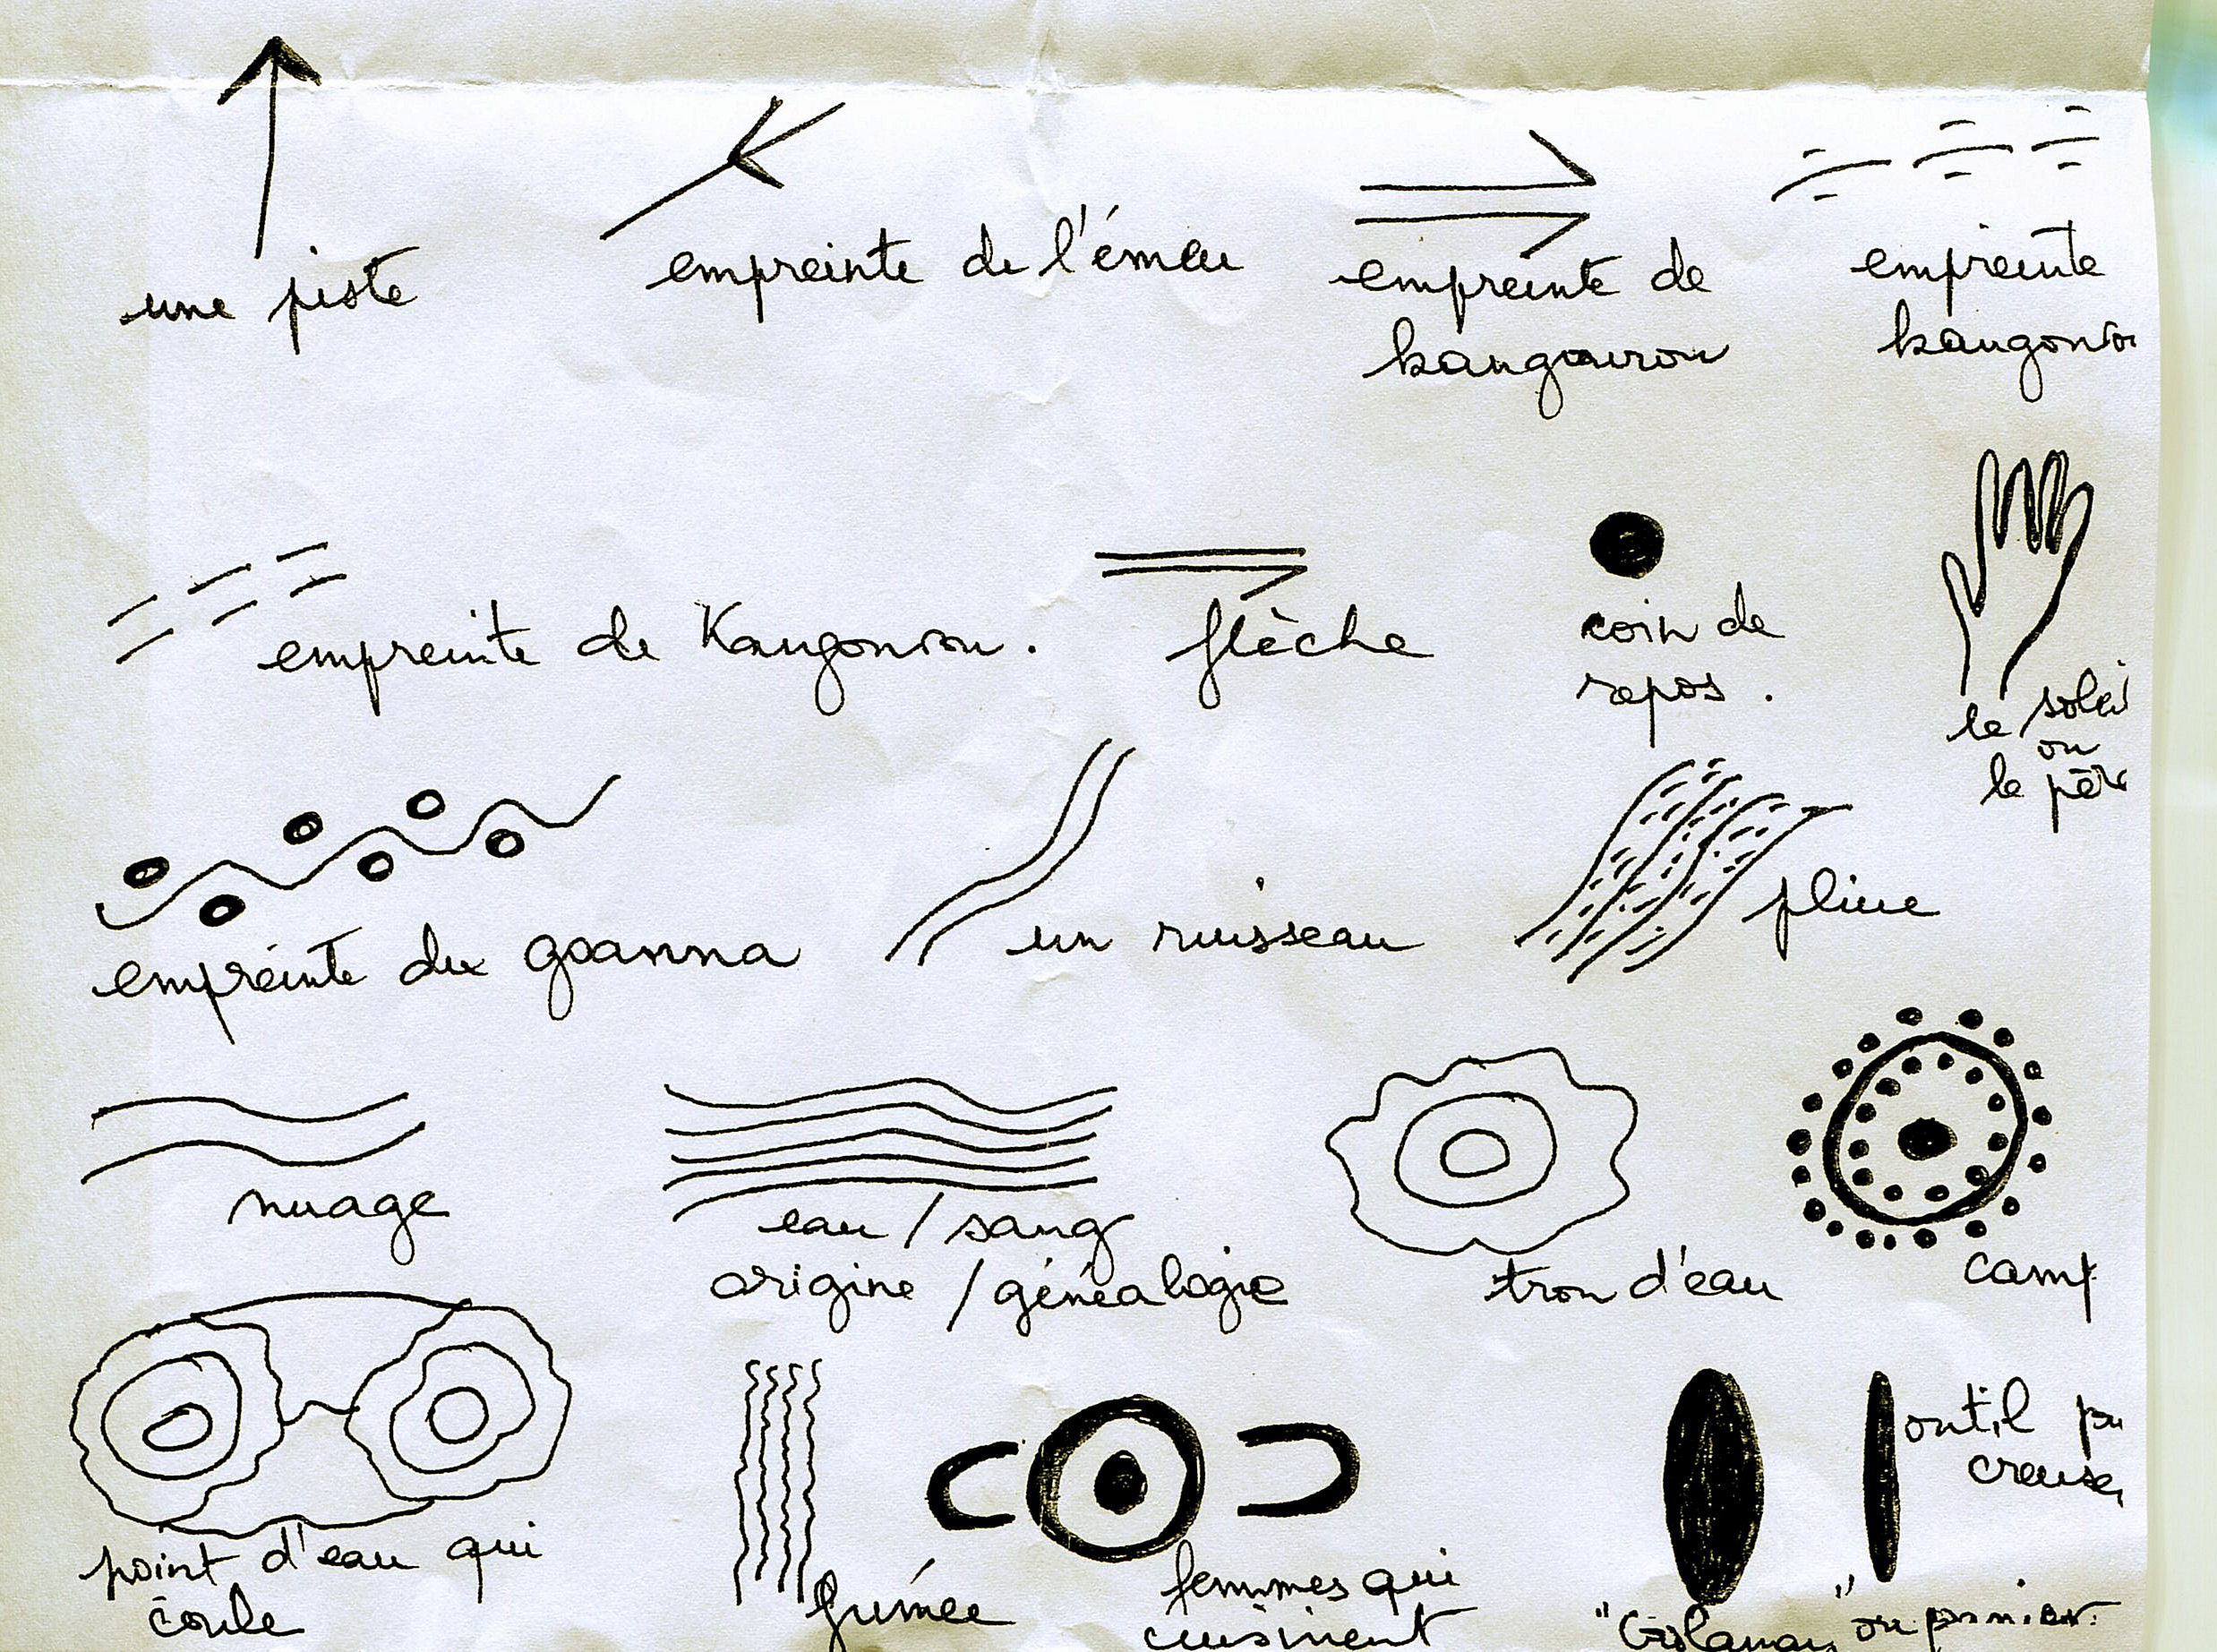 une piste
empreinte de l'émeu
empreinte de
kangourou
empreinte
empreinte de Kangourou.
flèche
coin de
repos.
le soleil
ou
le père
empreinte du goanna
un ruisseau
pluie
nuage
eau / sang
origine / généalogie
trou d'eau
camp
point d'eau qui
coule
fumée
femmes qui
cuisinent
outil
creuser
" " ou panier.